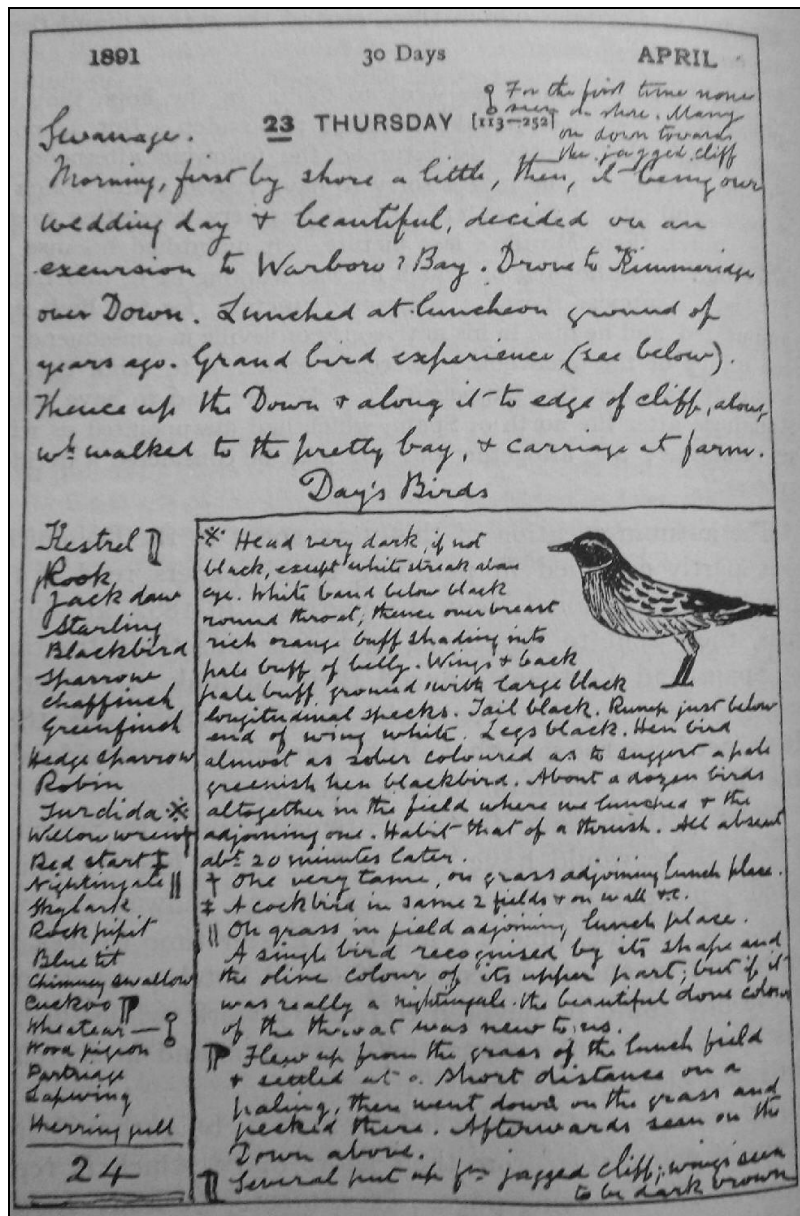 1891 30 Days APRIL
For the first time none
seen on shore. Many
on down towards
the jagged cliff
Swanage.
23 THURSDAY [113—252]
Morning, first by shore a little, then, it being our
wedding day & beautiful, decided on an
excursion to Warboro? Bay. Drove to Kimmeridge
over Down. Lunched at luncheon ground of
years ago. Grand bird experience (see below).
Thence up the Down & along it to edge of cliff, along
wh. walked to the pretty bay, & carriage at farm.
Day's Birds
Kestrel
Rook
Jackdaw
Starling
Blackbird
Sparrow
Chaffinch
Greenfinch
Hedge sparrow
Robin
Turdida ※
Willow wren †
Red start ‡
Nightingale ||
Skylark
Rock pipit
Blue tit
Chimney swallow
Cuckoo
Wheatear —
Wood pigeon
Partridge
Lapwing
Herring gull
24
※ Head very dark, if not
black, except white streak above
eye. White band below black
round throat, thence over breast
rich orange buff shading into
pale buff of belly. Wings & back
pale buff ground with large black
longitudinal specks. Tail black. Rump just below
end of wing white. Legs black. Hen bird
almost as sober coloured as to suggest a pale
greenish hen blackbird. About a dozen birds
altogether in the field where we lunched & the
adjoining one. Habit that of a thrush. All absent
abt. 20 minutes later.
† One very tame, on grass adjoining lunch place.
‡ A cock bird in same 2 fields & on wall &c.
|| On grass in field adjoining lunch place.
A single bird recognised by its shape and
the olive colour of its upper part; but if it
was really a nightingale the beautiful dove colour
of the throat was new to us.
Flew up from the grass of the lunch field
& settled at a short distance on a
paling, then went down on the grass and
pecked there. Afterwards seen on the
Down above.
Several put up fm jagged cliff; wings seen
to be dark brown